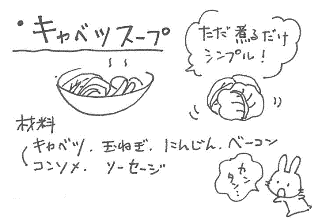 ・キャベツスープ
ただ煮るだけ
シンプル!
材料
キャベツ、玉ねぎ、にんじん、ベーコン
コンソメ、ソーセージ
カン
タン!